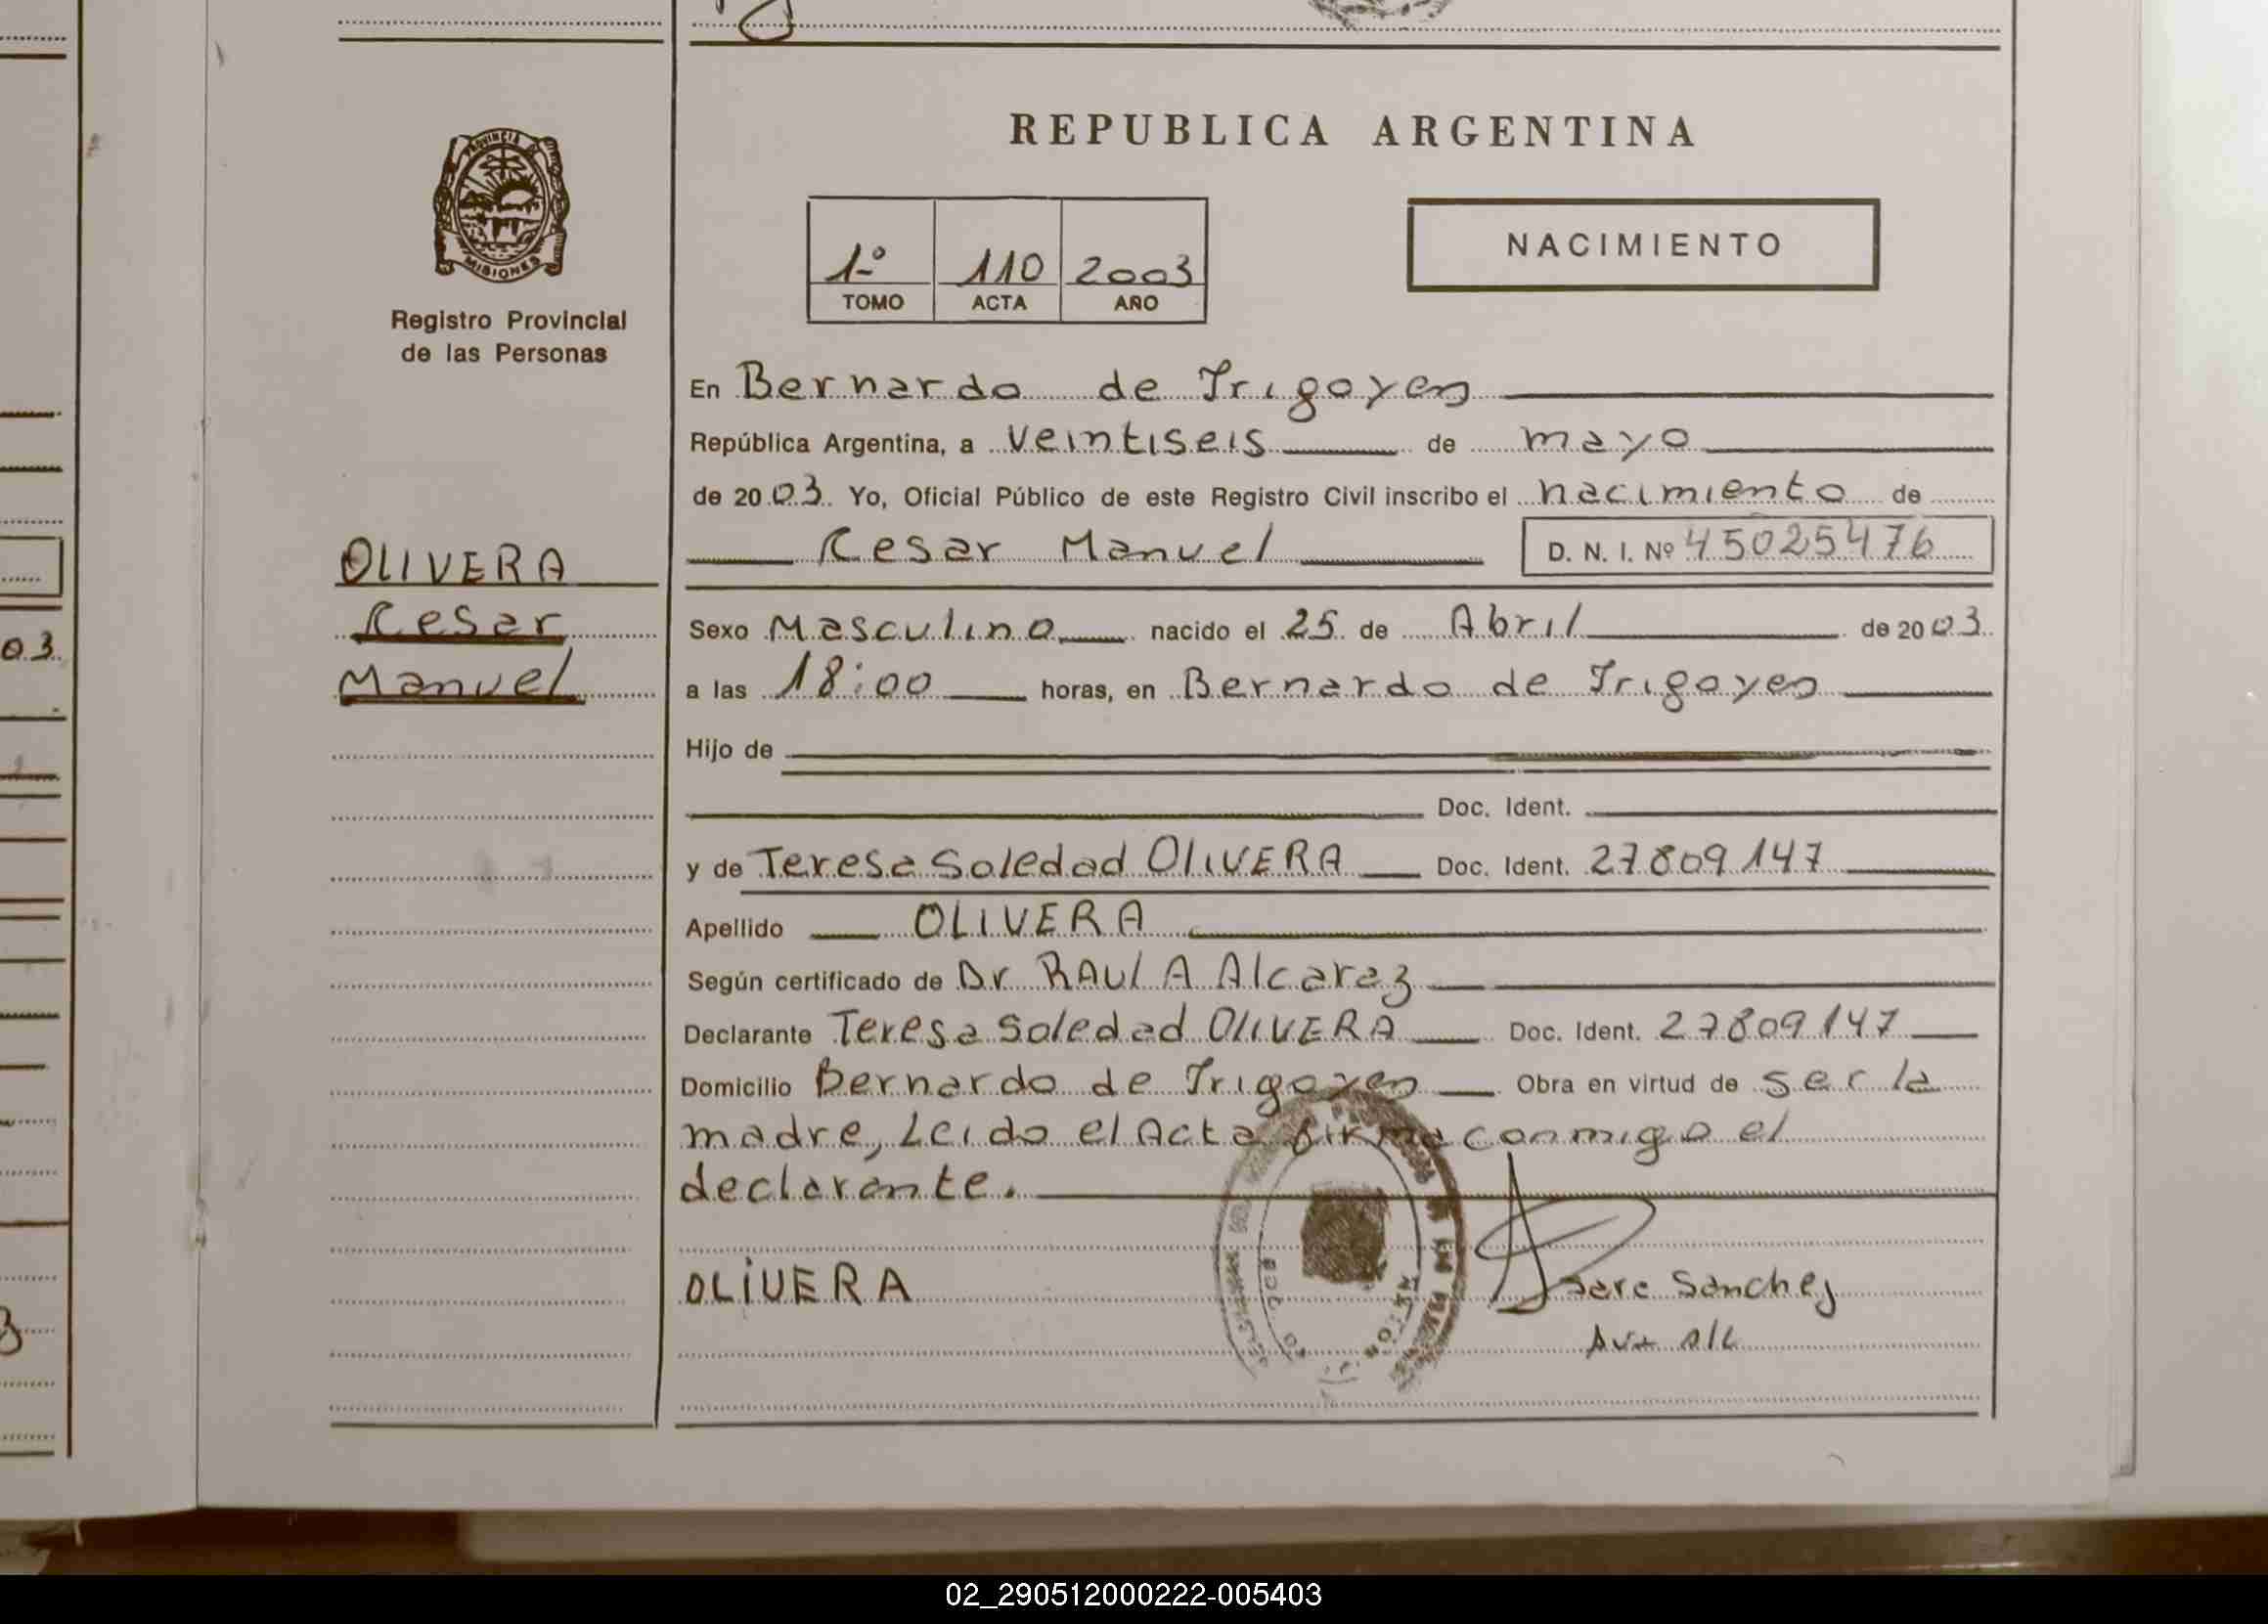 REPUBLICA ARGENTINA
PROVINCIA DE
MISIONES
Registro Provincial
de las Personas
1º 110 2003
TOMO ACTA AÑO
NACIMIENTO
En Bernardo de Irigoyen
República Argentina, a veintiseis de mayo
de 2003 Yo, Oficial Público de este Registro Civil inscribo el nacimiento de
Cesar Manuel D. N. I. Nº 45025476
OLIVERA
Cesar
Manuel
Sexo Masculino nacido el 25 de Abril de 2003
a las 18:00 horas, en Bernardo de Irigoyen
Hijo de
Doc. Ident.
y de Teresa Soledad OLIVERA Doc. Ident. 27809147
Apellido OLIVERA
Según certificado de Dr RAUL A Alcaraz
Declarante Teresa Soledad OLIVERA Doc. Ident. 27809147
Domicilio Bernardo de Irigoyen Obra en virtud de ser la
madre, Leido el Acta firma conmigo el
declarante.
OLiVERA
Sanchez
03
02_290512000222-005403